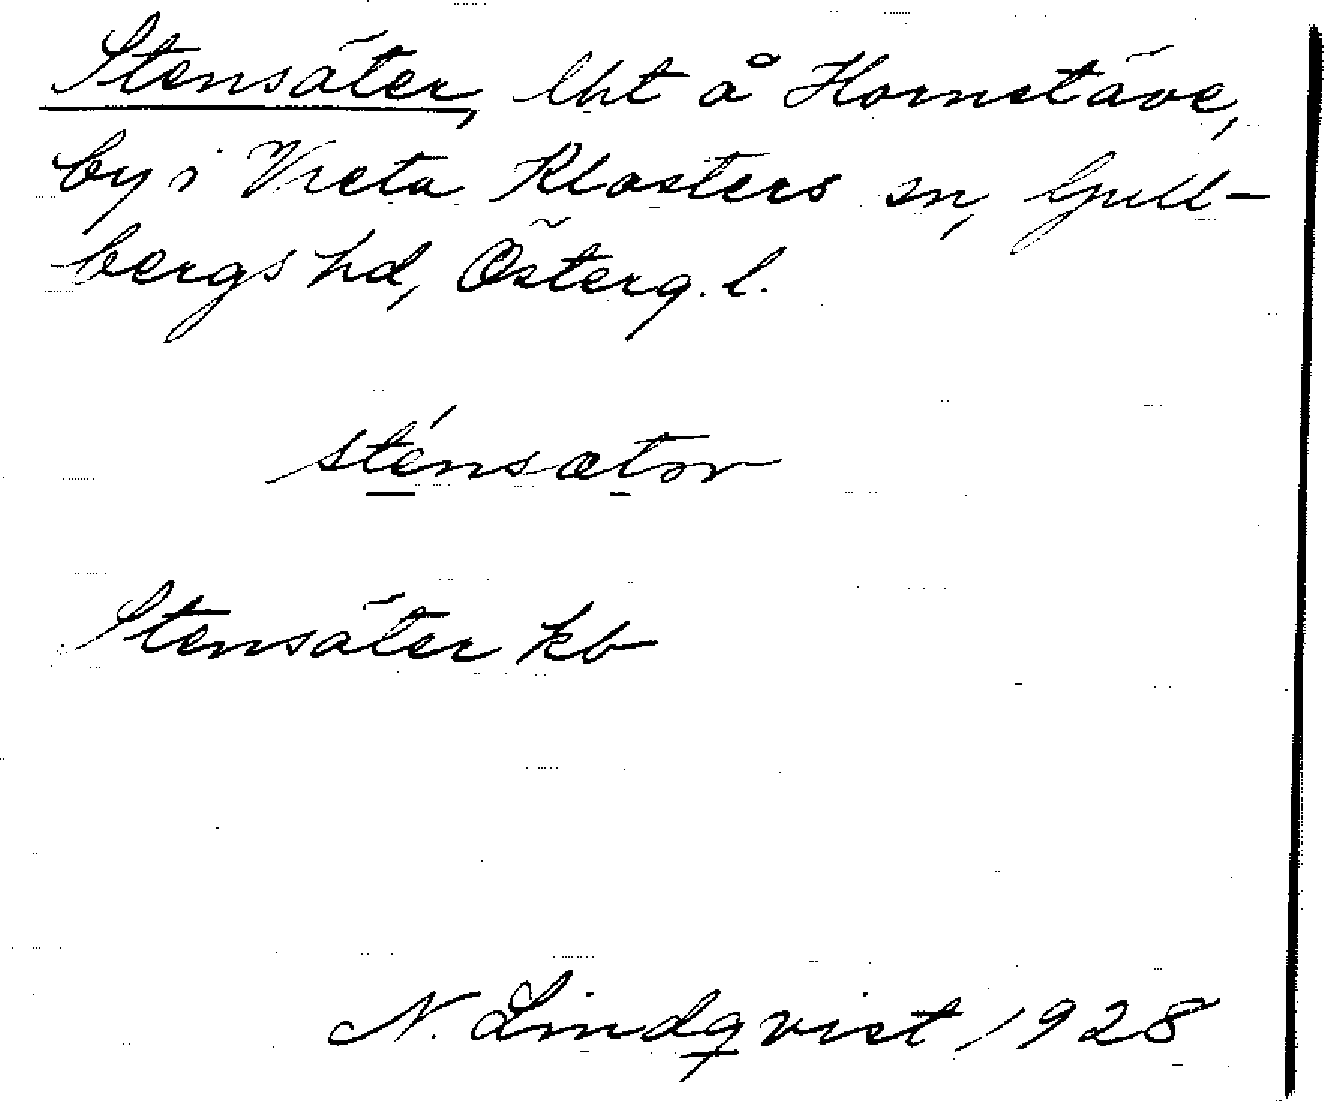 Stensäter, lht å Hornstäve,
by i Vreta Klosters sn, Gull-
bergs hd, Österg. l.
sténsætər
Stensäter kb
N. Lindqvist 1928